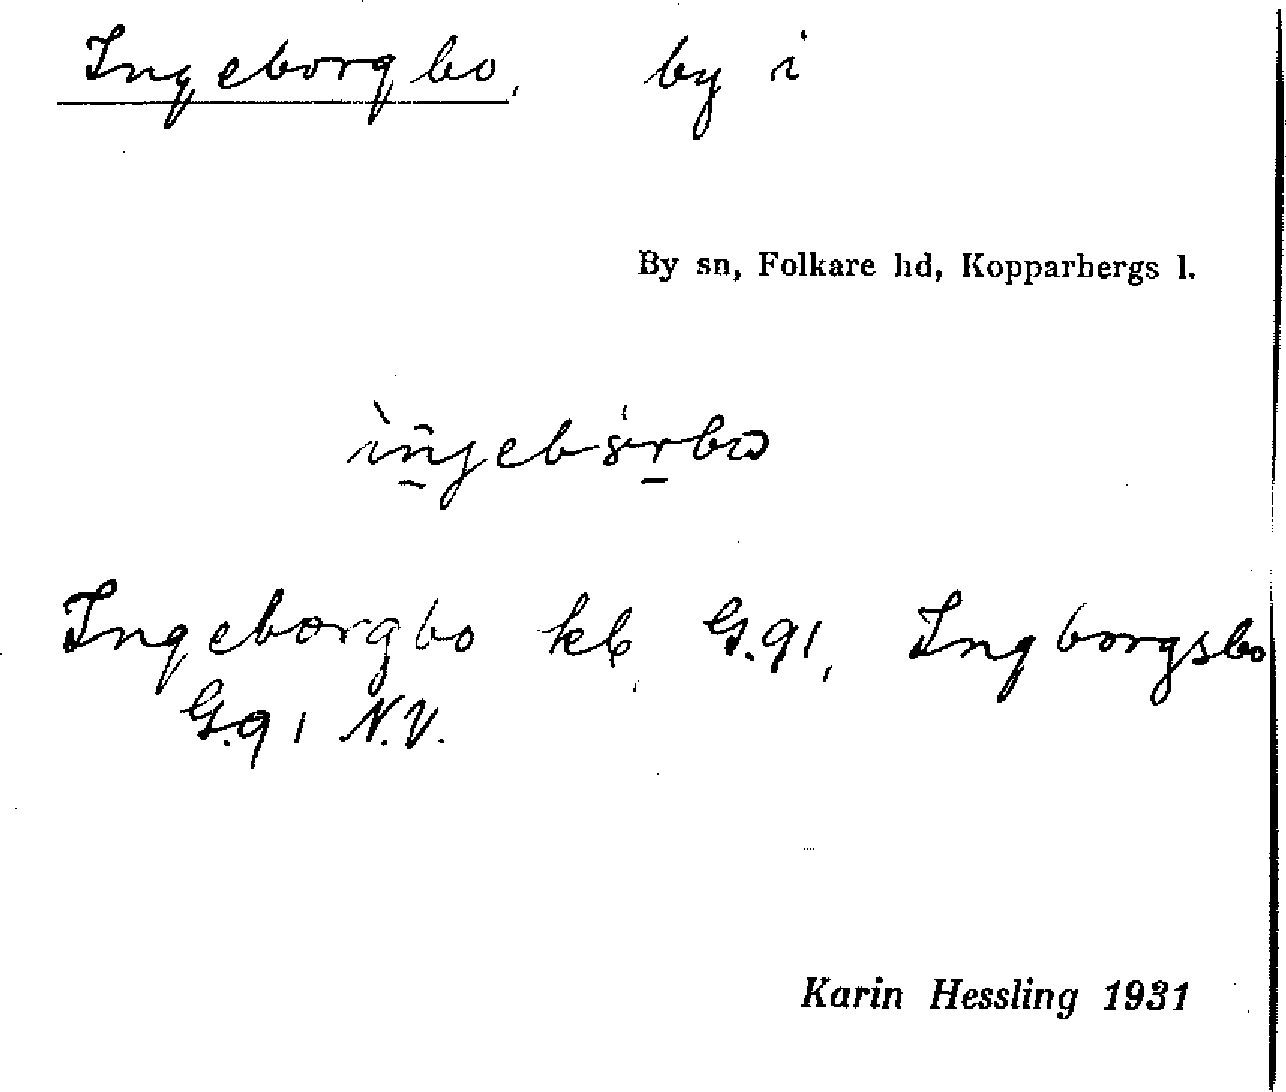 Ingeborgbo, by i
By sn, Folkare hd, Kopparbergs l.
Ingeborgbo kb, G.91, Ingborgsbo
G.91 N.V.
Karin Hessling 1931